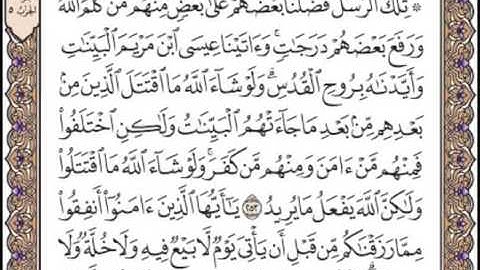 ۞ تِلْكَ ٱلرُّسُلُ فَضَّلْنَا بَعْضَهُمْ عَلَىٰ بَعْضٍ مِّنْهُم مَّن كَلَّمَ ٱللَّهُ
وَرَفَعَ بَعْضَهُمْ دَرَجَٰتٍ وَءَاتَيْنَا عِيسَى ٱبْنَ مَرْيَمَ ٱلْبَيِّنَٰتِ
وَأَيَّدْنَٰهُ بِرُوحِ ٱلْقُدُسِ وَلَوْ شَآءَ ٱللَّهُ مَا ٱقْتَتَلَ ٱلَّذِينَ مِنۢ
بَعْدِهِم مِّنۢ بَعْدِ مَا جَآءَتْهُمُ ٱلْبَيِّنَٰتُ وَلَٰكِنِ ٱخْتَلَفُوا۟
فَمِنْهُم مَّنْ ءَامَنَ وَمِنْهُم مَّن كَفَرَ وَلَوْ شَآءَ ٱللَّهُ مَا ٱقْتَتَلُوا۟
وَلَٰكِنَّ ٱللَّهَ يَفْعَلُ مَا يُرِيدُ ٢٥٣ يَٰٓأَيُّهَا ٱلَّذِينَ ءَامَنُوٓا۟ أَنفِقُوا۟
مِمَّا رَزَقْنَٰكُم مِّن قَبْلِ أَن يَأْتِىَ يَوْمٌ لَّا بَيْعٌ فِيهِ وَلَا خُلَّةٌ وَلَا